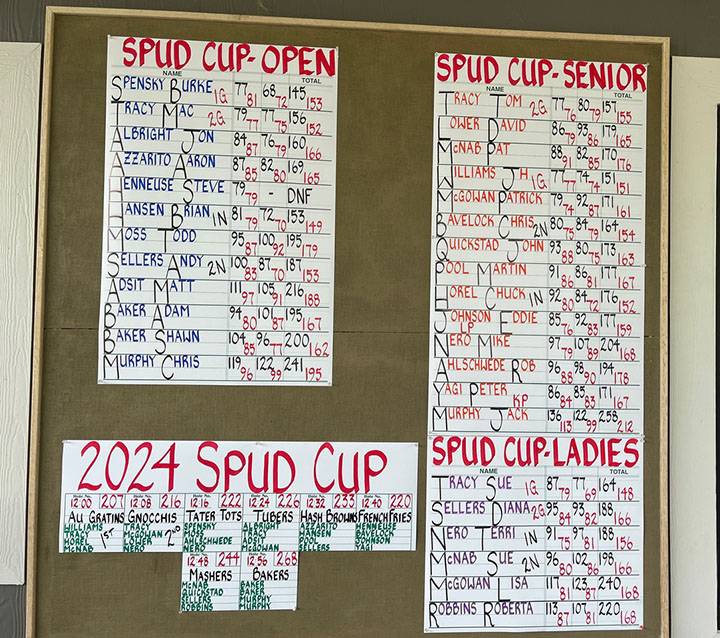 SPUD CUP-OPEN
NAME TOTAL
SPENSKY BURKE 1G 77 81 68 72 145 153
TRACY MAC 2G 79 77 77 75 156 152
ALBRIGHT JON 84 87 76 79 160 166
AZZARITO AARON 87 85 82 80 169 165
HENNEUSE STEVE 79 79 - DNF
HANSEN BRIAN 1N 81 79 72 70 153 149
MOSS TODD 95 87 100 92 195 179
SELLERS ANDY 2N 100 83 87 70 187 153
ADSIT MATT 111 97 105 91 216 188
BAKER ADAM 94 80 101 87 195 167
BAKER SHAWN 104 85 96 77 200 162
MURPHY CHRIS 119 96 122 99 241 195
SPUD CUP-SENIOR
NAME TOTAL
TRACY TOM 2G 77 76 80 79 157 155
LOWER DAVID 86 79 93 86 179 165
MCNAB PAT 88 91 82 85 170 176
WILLIAMS JH 1G 77 77 74 74 151 151
MCGOWAN PATRICK 79 74 92 87 171 161
BAVELOCK CHRIS 2N 80 75 84 79 164 154
QUICKSTAD JOHN 93 88 80 75 173 163
POOL MARTIN 91 86 86 81 177 167
HOREL CHUCK 1N 92 80 84 72 176 152
JOHNSON EDDIE LP 85 76 92 83 177 159
NERO MIKE 97 79 107 89 204 168
AHLSCHWEDE ROB 96 88 98 90 194 178
YAGI PETER KP 86 84 85 83 171 167
MURPHY JACK 136 113 122 99 258 212
SPUD CUP-LADIES
NAME TOTAL
TRACY SUE 1G 87 79 77 69 164 148
SELLERS DIANA 2G 95 84 93 82 188 166
NERO TERRI 1N 91 75 97 81 188 156
MCNAB SUE 2N 96 80 102 86 198 166
MCGOWAN LISA 117 81 123 87 240 168
ROBBINS ROBERTA 113 87 107 81 220 168
2024 SPUD CUP
12:00 207 12:08 216 12:16 222 12:24 226 12:32 233 12:40 220
AU GRATINS GNOCCHIS TATER TOTS TUBERS HASH BROWNS FRENCH FRIES
WILLIAMS TRACY SPENSKY ALBRIGHT AZZARITO HENNEUSE
TRACY 1ST MCGOWAN 2ND MOSS TRACY HANSEN BAVELOCK
HOREL LOWER AHLSCHWEDE ADSIT POOL JOHNSON
MCNAB NERO NERO MCGOWAN SELLERS YAGI
12:48 244 12:56 268
MASHERS BAKERS
MCNAB BAKER
QUICKSTAD BAKER
SELLERS MURPHY
ROBBINS MURPHY